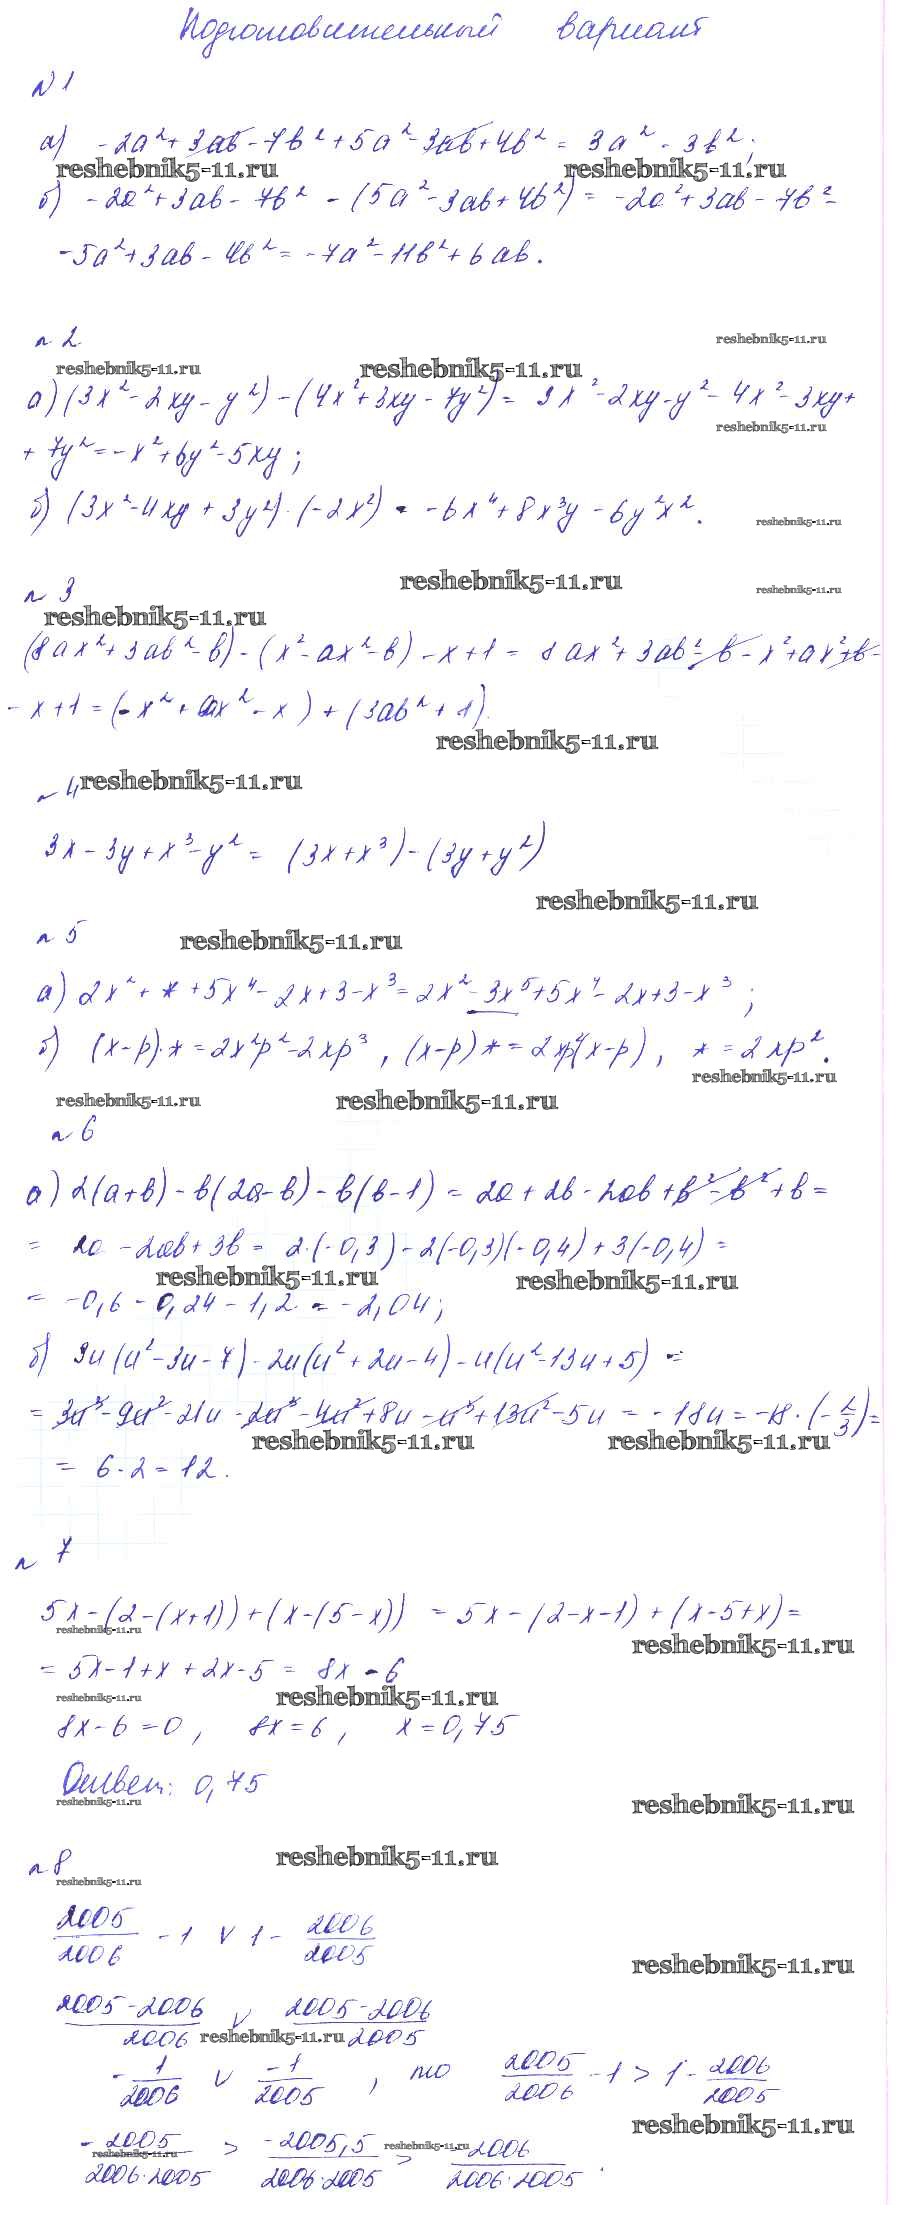 Подготовительный вариант
№1
а) -2a² + 3ab - 7b² + 5a² - 3ab + 4b² = 3a² - 3b²;
reshebnik5-11.ru reshebnik5-11.ru
б) -2a² + 3ab - 7b² - (5a² - 3ab + 4b²) = -2a² + 3ab - 7b² -
-5a² + 3ab - 4b² = -7a² - 11b² + 6ab.
№2
reshebnik5-11.ru
reshebnik5-11.ru reshebnik5-11.ru
а) (3x² - 2xy - y²) - (4x² + 3xy - 7y²) = 3x² - 2xy - y² - 4x² - 3xy +
reshebnik5-11.ru
+ 7y² = -x² + 6y² - 5xy;
б) (3x² - 4xy + 3y²) · (-2x²) = -6x⁴ + 8x³y - 6y²x².
reshebnik5-11.ru
reshebnik5-11.ru reshebnik5-11.ru
№3
reshebnik5-11.ru
(8ax² + 3ab² - b) - (x² - ax² - b) - x + 1 = 8ax² + 3ab² - b - x² + ax² + b -
- x + 1 = (-x² + 9ax² - x) + (3ab² + 1).
reshebnik5-11.ru
№4 reshebnik5-11.ru
3x - 3y + x³ - y² = (3x + x³) - (3y + y²)
reshebnik5-11.ru
№5 reshebnik5-11.ru
а) 2x² + * + 5x⁴ - 2x + 3 - x³ = 2x² - 3x⁵ + 5x⁴ - 2x + 3 - x³;
б) (x-p)·* = 2x²p² - 2xp³, (x-p)* = 2xp²(x-p), * = 2xp².
reshebnik5-11.ru
reshebnik5-11.ru reshebnik5-11.ru
№6
а) 2(a+b) - b(2a-b) - b(b-1) = 2a + 2b - 2ab + b² - b² + b =
= 2a - 2ab + 3b = 2·(-0,3) - 2(-0,3)(-0,4) + 3(-0,4) =
reshebnik5-11.ru reshebnik5-11.ru
= -0,6 - 0,24 - 1,2 = -2,04;
б) 3u(u² - 3u - 7) - 2u(u² + 2u - 4) - u(u² - 13u + 5) =
= 3u³ - 9u² - 21u - 2u³ - 4u² + 8u - u³ + 13u² - 5u = -18u = -18·(-2/3) =
reshebnik5-11.ru reshebnik5-11.ru
= 6·2 = 12.
№7
5x - (2 - (x+1)) + (x - (5-x)) = 5x - (2-x-1) + (x-5+x) =
reshebnik5-11.ru reshebnik5-11.ru
= 5x - 1 + x + 2x - 5 = 8x - 6
reshebnik5-11.ru reshebnik5-11.ru
8x - 6 = 0, 8x = 6, x = 0,75
Ответ: 0,75
reshebnik5-11.ru reshebnik5-11.ru
№8 reshebnik5-11.ru
reshebnik5-11.ru
2005/2006 - 1 ∨ 1 - 2006/2005
reshebnik5-11.ru
(2005-2006)/2006 ∨ (2005-2006)/2005
reshebnik5-11.ru
-1/2006 ∨ -1/2005, то 2005/2006 - 1 > 1 - 2006/2005
reshebnik5-11.ru
-2005/(2006·2005) > -2005,5/(2006·2005) > -2006/(2006·2005).
reshebnik5-11.ru reshebnik5-11.ru